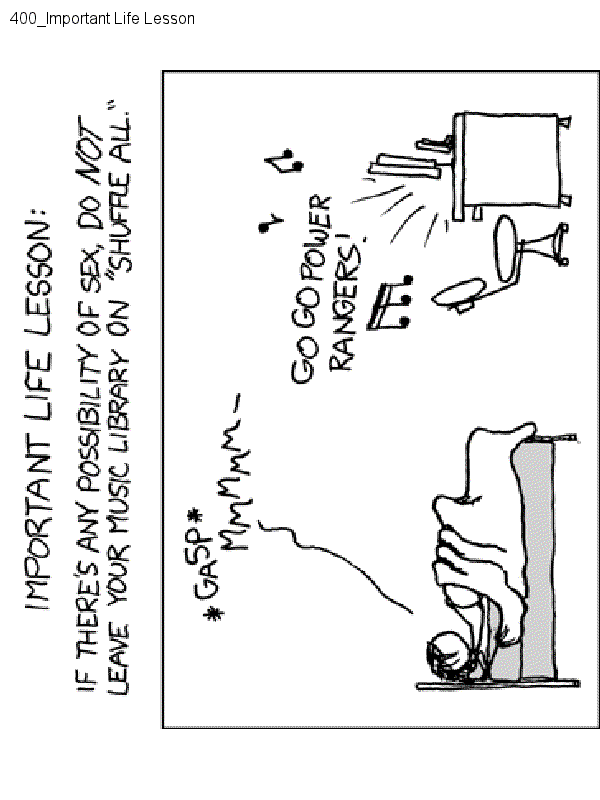 400_Important Life Lesson
IMPORTANT LIFE LESSON:
IF THERE'S ANY POSSIBILITY OF SEX, DO NOT
LEAVE YOUR MUSIC LIBRARY ON "SHUFFLE ALL."
*GASP*
MMMMMM—
GO GO POWER
RANGERS!